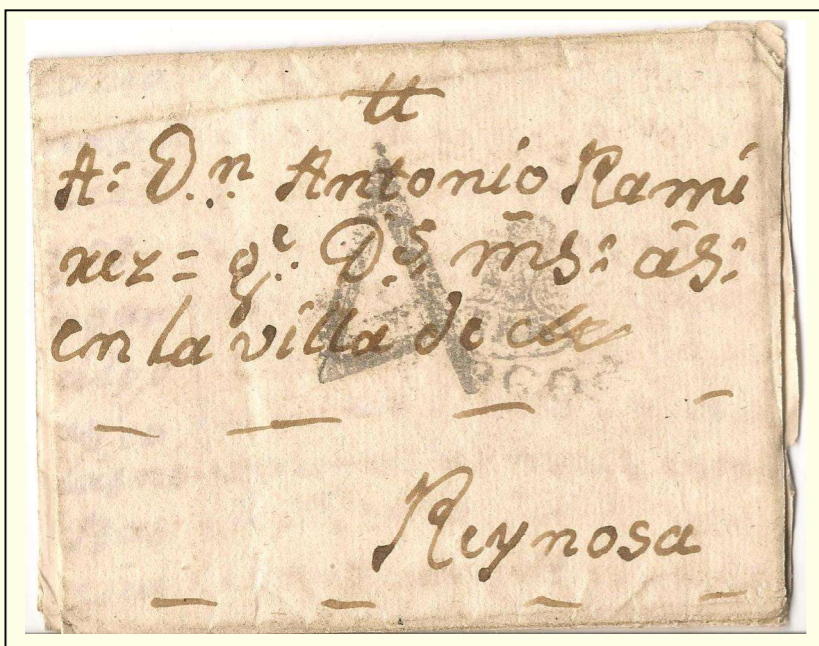 tt
A: D.n Antonio Rami
rez = q.e D.s m̄s: ās:
en la villa de
A
Reynosa